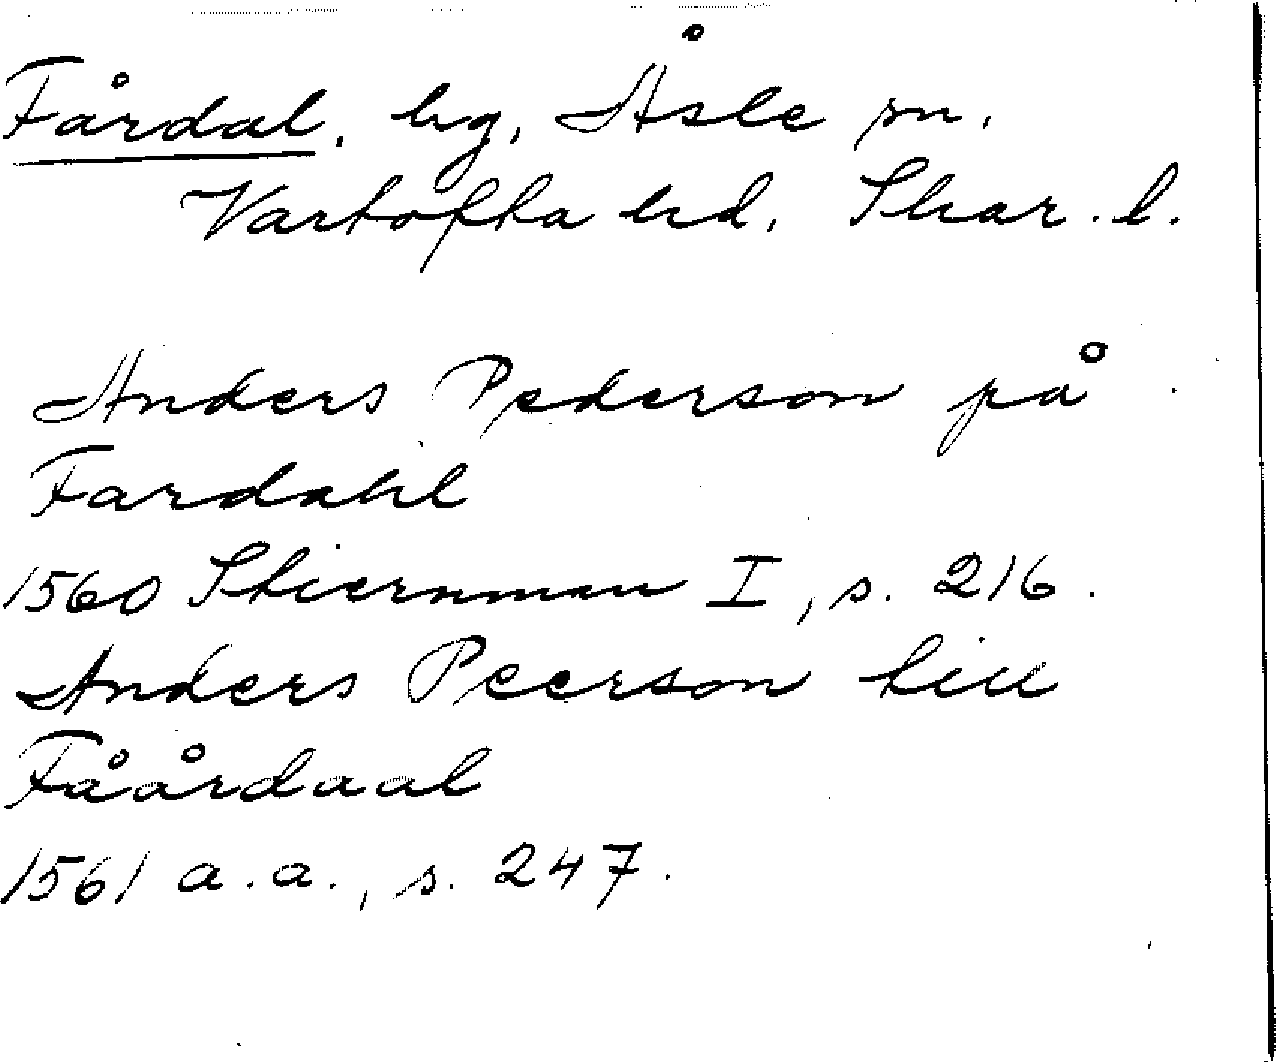 Fårdal, hg, Åsle sn.
Vartofta hd, Skar. l.
Anders Pederson på
Fardahl
1560 Stiernman I, s. 216.
Anders Peerson till
Fåårdaal
1561 a.a., s. 247.